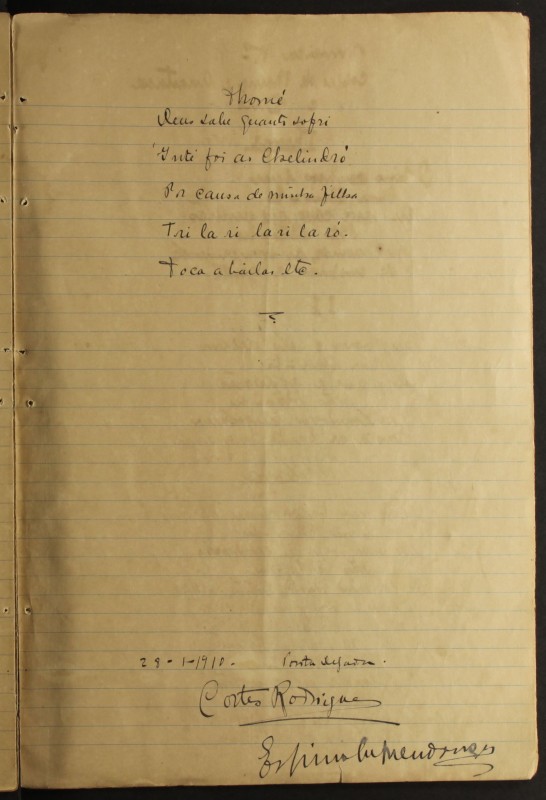 Thomé
Deus sabe quanto sofri
Inté foi ao Chelindró
Por causa de minha filha
Tri la ri la ri la ró.
Toca a bailar etc.
28-1-1910. Ponta Delgada.
Cortes Rodrigues
Espinola Mendonça